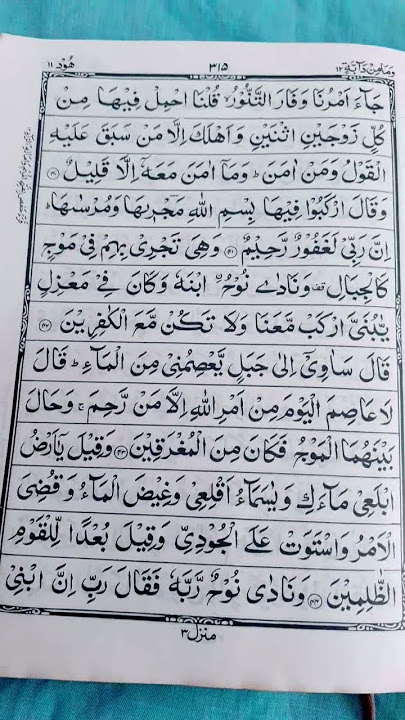 وَمَا مِنْ دَآبَّةٍ ١٢ ٣١٥ هُوْد ١١
جَآءَ اَمْرُنَا وَفَارَ التَّنُّوْرُ ۙ قُلْنَا احْمِلْ فِيْهَا مِنْ
كُلٍّ زَوْجَيْنِ اثْنَيْنِ وَاَهْلَكَ اِلَّا مَنْ سَبَقَ عَلَيْهِ
الْقَوْلُ وَمَنْ اٰمَنَ ؕ وَمَاۤ اٰمَنَ مَعَهٗۤ اِلَّا قَلِيْلٌ ﴿۴۰﴾
وَقَالَ ارْكَبُوْا فِيْهَا بِسْمِ اللّٰهِ مَجْرٖىهَا وَمُرْسٰىهَا ؕ
اِنَّ رَبِّيْ لَغَفُوْرٌ رَّحِيْمٌ ﴿۴۱﴾ وَهِيَ تَجْرِيْ بِهِمْ فِيْ مَوْجٍ
كَالْجِبَالِ ۫ وَنَادٰى نُوْحُ ۨ ابْنَهٗ وَكَانَ فِيْ مَعْزِلٍ
يّٰبُنَيَّ ارْكَبْ مَّعَنَا وَلَا تَكُنْ مَّعَ الْكٰفِرِيْنَ ﴿۴۲﴾
قَالَ سَاٰوِيْۤ اِلٰى جَبَلٍ يَّعْصِمُنِيْ مِنَ الْمَآءِ ؕ قَالَ
لَا عَاصِمَ الْيَوْمَ مِنْ اَمْرِ اللّٰهِ اِلَّا مَنْ رَّحِمَ ۚ وَحَالَ
بَيْنَهُمَا الْمَوْجُ فَكَانَ مِنَ الْمُغْرَقِيْنَ ﴿۴۳﴾ وَقِيْلَ يٰۤاَرْضُ
ابْلَعِيْ مَآءَكِ وَيٰسَمَآءُ اَقْلِعِيْ وَغِيْضَ الْمَآءُ وَقُضِيَ
الْاَمْرُ وَاسْتَوَتْ عَلَى الْجُوْدِيِّ وَقِيْلَ بُعْدًا لِّلْقَوْمِ
الظّٰلِمِيْنَ ﴿۴۴﴾ وَنَادٰى نُوْحٌ رَّبَّهٗ فَقَالَ رَبِّ اِنَّ ابْنِيْ
منزل ٣